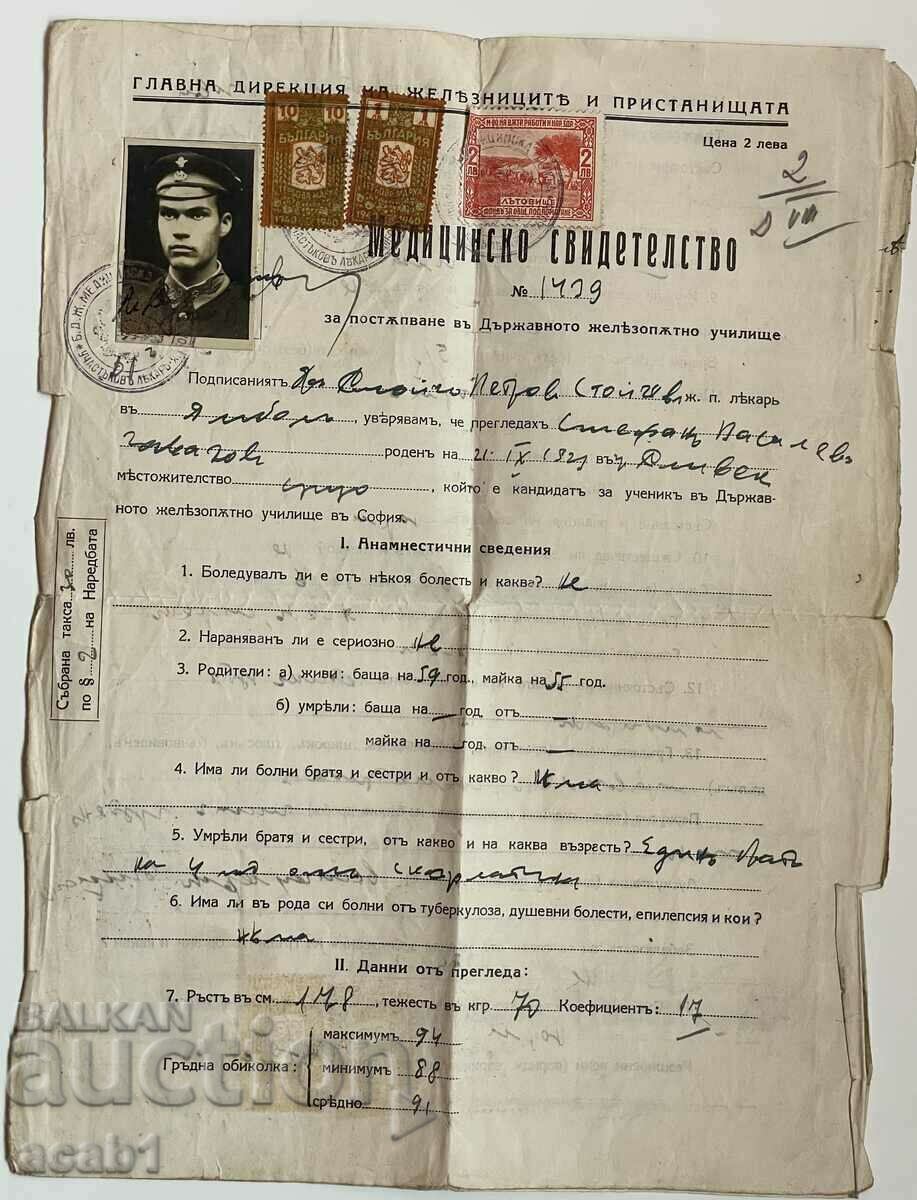 ГЛАВНА ДИРЕКЦИЯ НА ЖЕЛѢЗНИЦИТѢ И ПРИСТАНИЩАТА
Цена 2 лева
10 10
БЪЛГАРИЯ
1 1
БЪЛГАРИЯ
2 ЛВ 2 ЛВ
ЛѢТОВИЩЕ
2
VIII
Медицинско свидетелство
№ 1479
за постѫпване въ Държавното желѣзопѫтно училище
Подписаниятъ Др. Петров Стойчев ж. п. лѣкарь
въ Ямболъ, увѣрявамъ, че прегледахъ Стефанъ Василевъ
роденъ на 21. IX въ Сливен
мѣстожителство също, който е кандидатъ за ученикъ въ Държав-
ното желѣзопѫтно училище въ София.
Събрана такса лв.
по § 2 на Наредбата
I. Анамнестични сведения
1. Боледувалъ ли е отъ нѣкоя болесть и каква? Не
2. Нараняванъ ли е сериозно Не
3. Родители: а) живи: баща на 59 год., майка на 55 год.
б) умрѣли: баща на — год. отъ —
майка на — год. отъ —
4. Има ли болни братя и сестри и отъ какво? Нѣма
5. Умрѣли братя и сестри, отъ какво и на каква възресть? Единъ братъ
на 4 год. отъ скарлатина
6. Има ли въ рода си болни отъ туберкулоза, душевни болести, епилепсия и кои?
Нѣма
II. Данни отъ прегледа:
7. Ръстъ въ см. 178, тежесть въ кгр. 70 Коефициентъ: 17
Гръдна обиколка:
максимумъ 94
минимумъ 88
срѣдно 91
BALKAN
auction
acab1